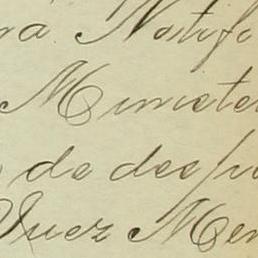 ra Notifi
Ministe
de despu
Juez Men